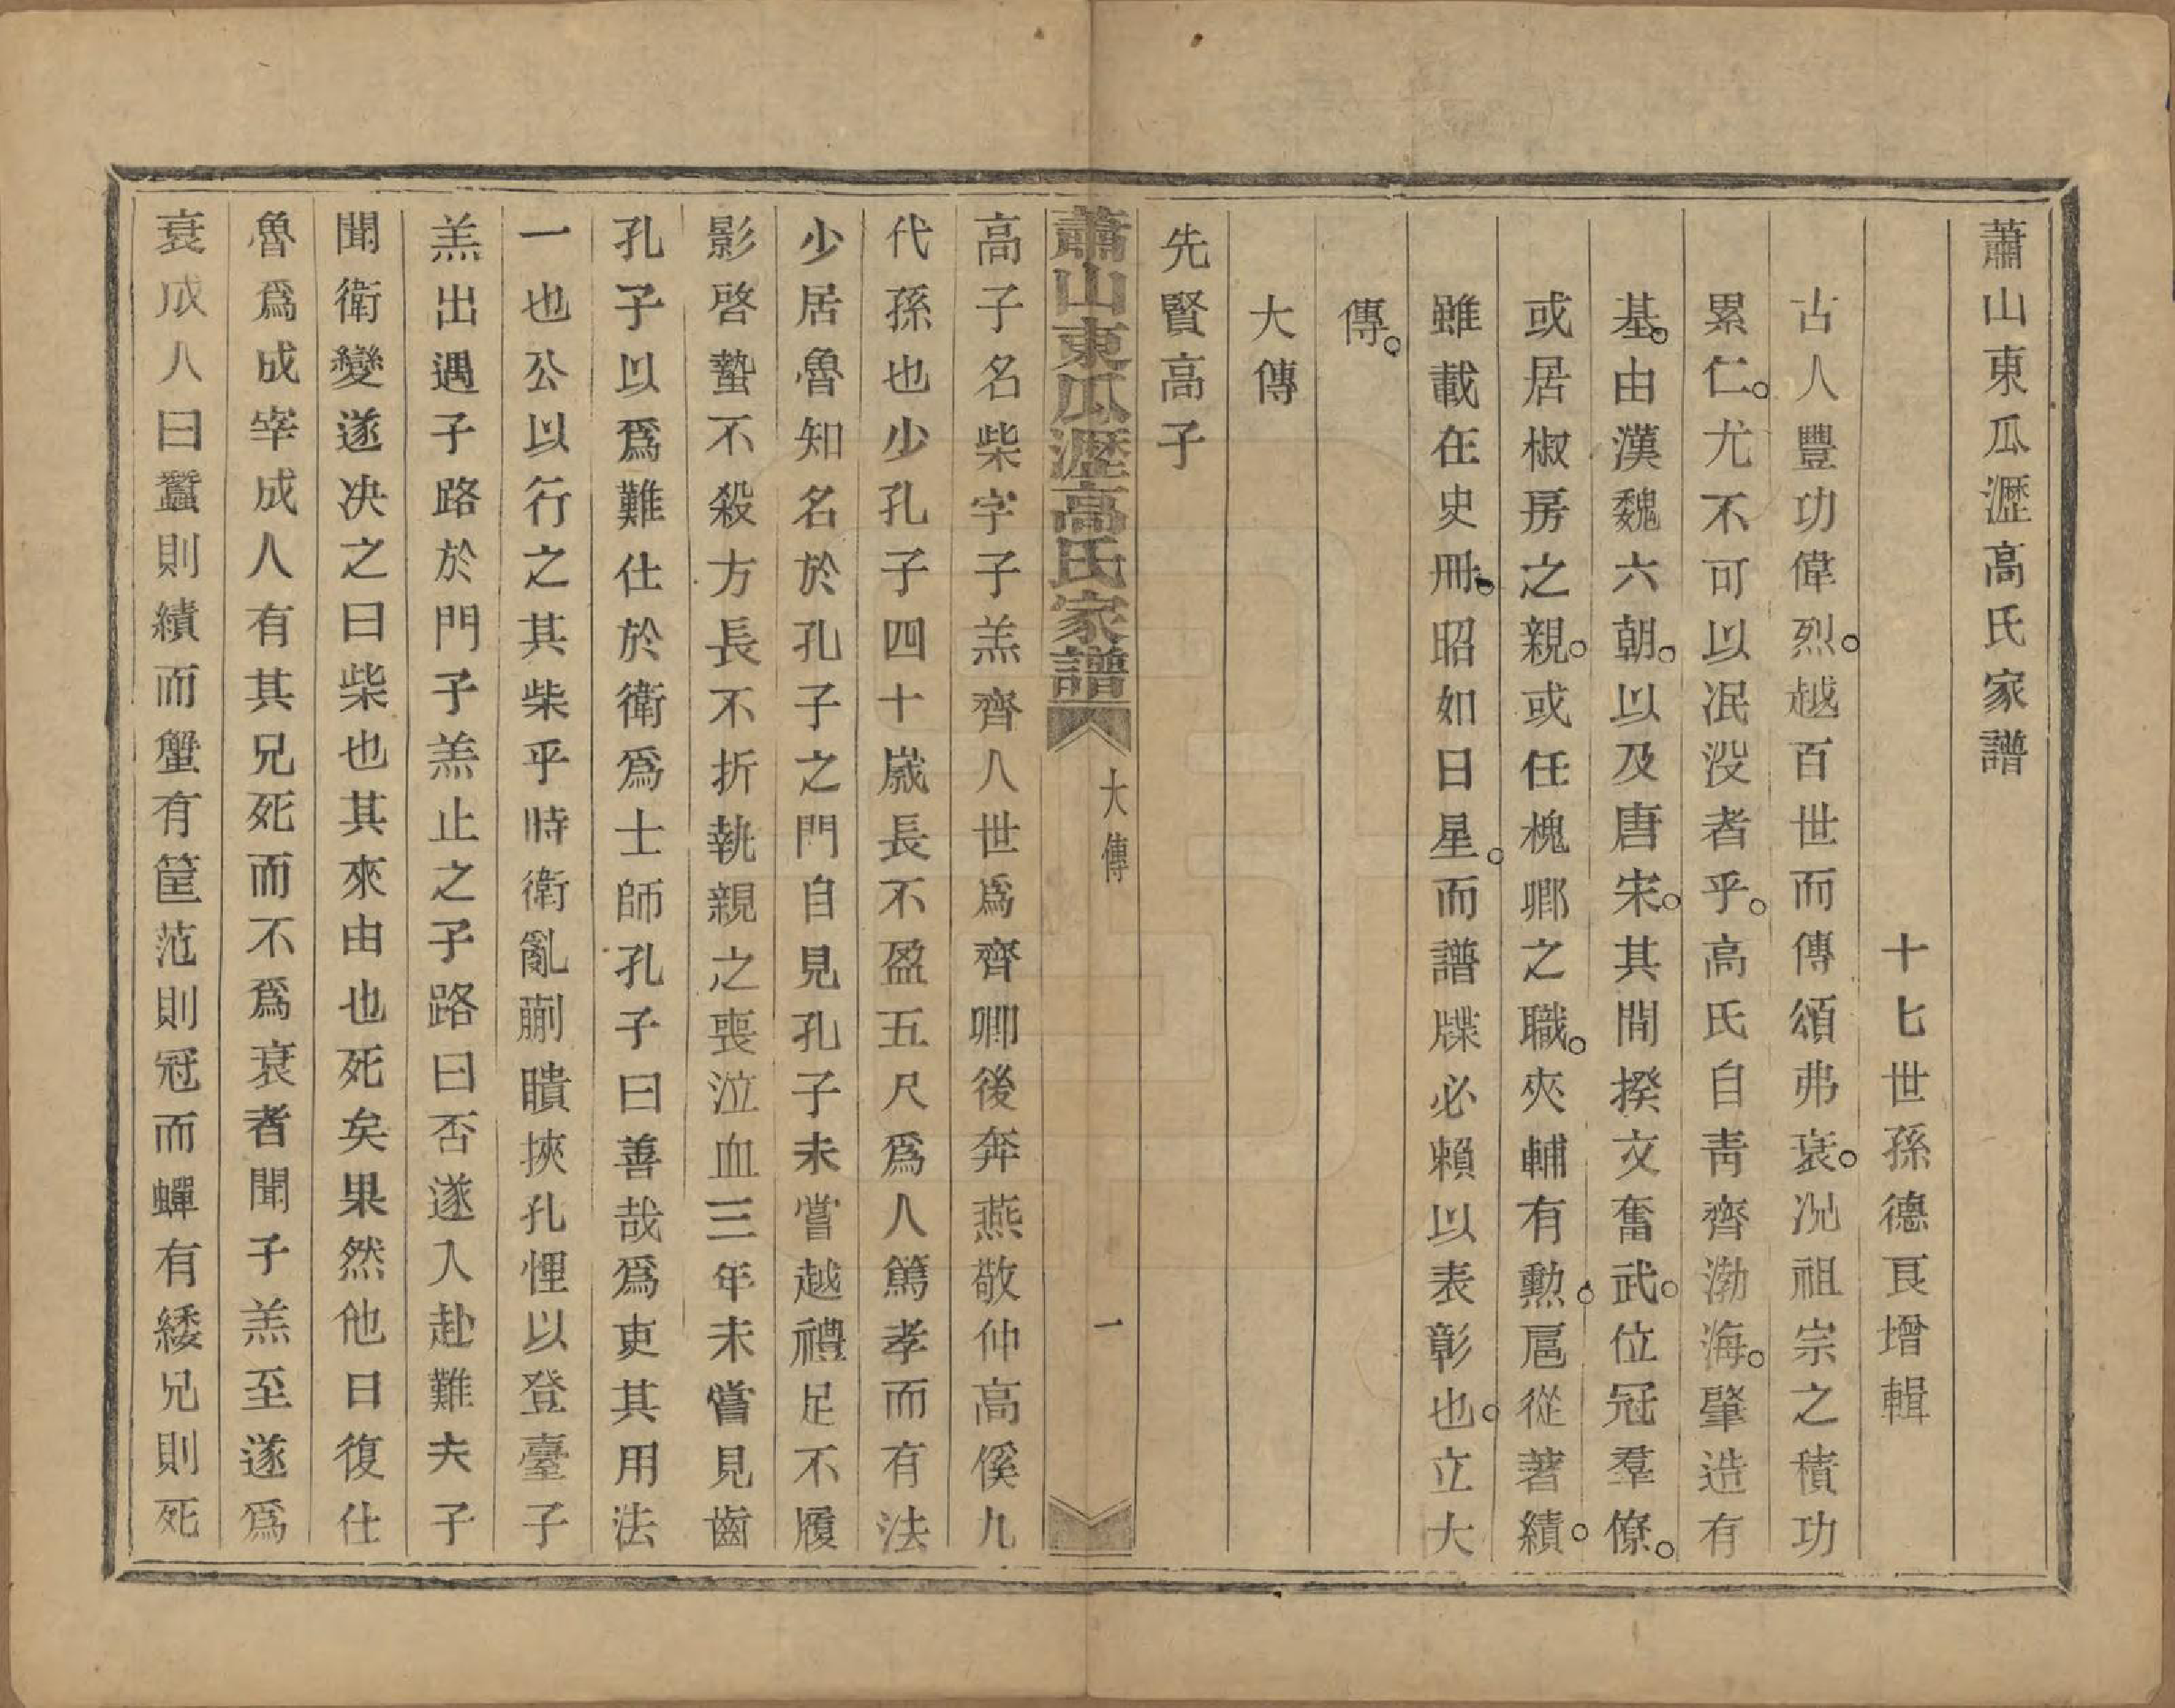 蕭山東瓜瀝高氏家譜
十七世孫德良增輯
古人豐功偉烈。越百世而傳頌弗衰。况祖宗之積功
累仁。尤不可以泯没者乎。高氏自靑齊渤海。肇造有
基。由漢魏六朝。以及唐宋。其間揆文奮武。位冠羣僚。
或居椒房之親。或任槐卿之職。夾輔有勲。扈從著績。
雖載在史冊。昭如日星。而譜牒必賴以表彰也。立大
傳。
大傳
先賢高子
蕭山東瓜瀝高氏家譜 大傳 一
高子名柴字子羔齊人世爲齊卿後奔燕敬仲高傒九
代孫也少孔子四十歲長不盈五尺爲人篤孝而有法
少居魯知名於孔子之門自見孔子未嘗越禮足不履
影啓蟄不殺方長不折執親之喪泣血三年未嘗見齒
孔子以爲難仕於衛爲士師孔子曰善哉爲吏其用法
一也公以行之其柴乎時衛亂蒯聵挾孔悝以登臺子
羔出遇子路於門子羔止之子路曰否遂入赴難夫子
聞衛變遂决之曰柴也其來由也死矣果然他日復仕
魯爲成宰成人有其兄死而不爲衰者聞子羔至遂爲
衰成人曰蠶則績而蟹有筐范則冠而蟬有緌兄則死